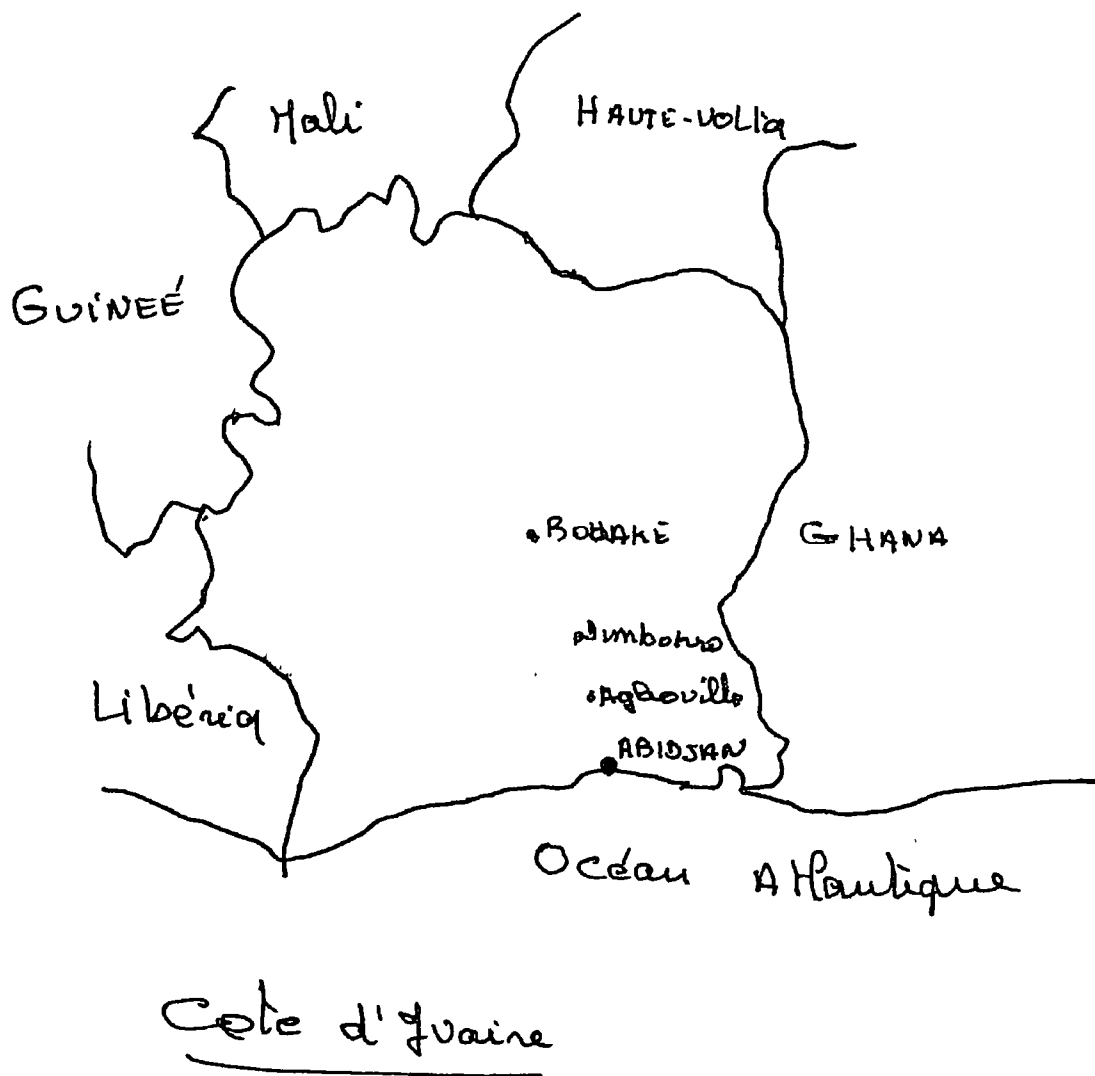 Mali
HAUTE-VOLTA
GUINEÉ
BOUAKE
GHANA
Dimbokro
Agboville
Libéria
ABIDJAN
Océan Atlantique
Cote d'Ivoire